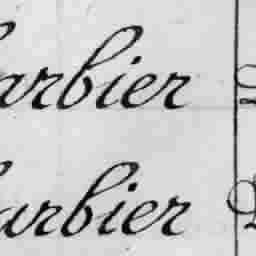 arbier
arbier